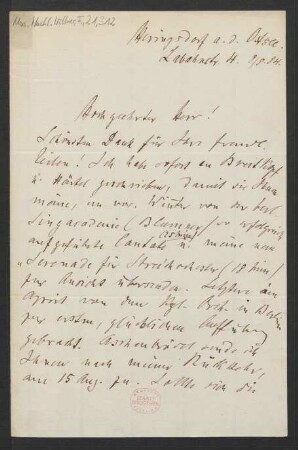 Heringsdorf a. d. Ostsee.
4. 8. 84.
Hochgeehrter Herr!
Schönsten Dank für Ihre freundl.
Zeilen! Ich habe sofort an Breitkopf
u. Härtel geschrieben, damit sie Ihnen
meine, im vor. Winter von der
Singakademie (Blumner) so erfolgreich
aufgeführte Cantate u. meine neue
„Serenade für Streichorchester
zur Ansicht übersenden. Letztere
April von dem Kgl. Orch. in Berlin
zur ersten, glücklichen Aufführung
gebracht. Aschenbrödel sende ich
Ihnen nach meiner Rückkehr,
am 15 Aug. zu. Sollte sich die